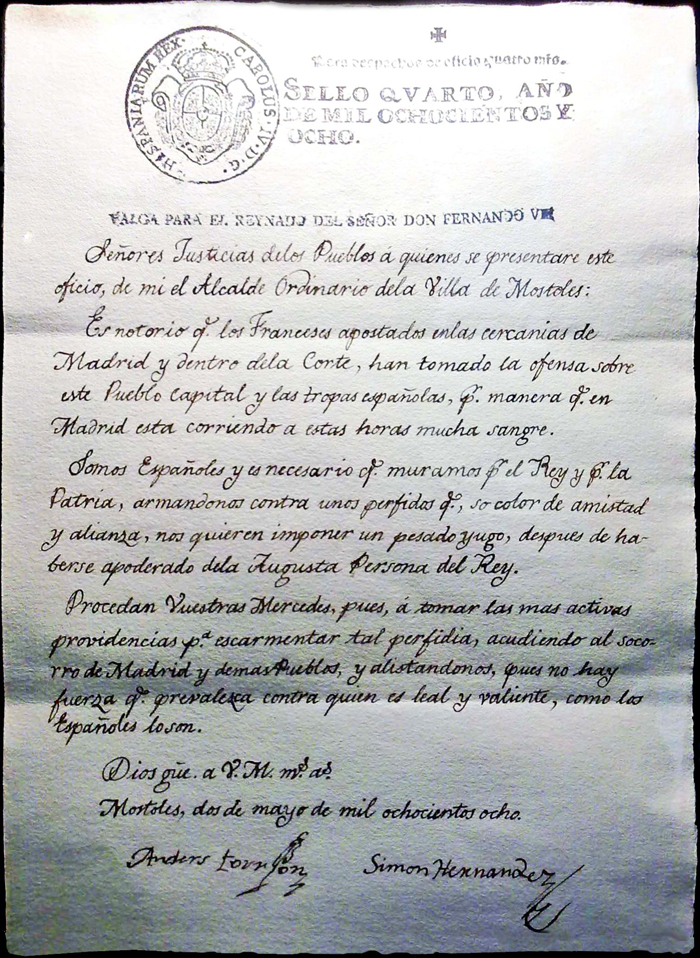 HISPANIARUM REX · CAROLUS · IV · D · G ·
✠
Para despachos de oficio quatro mrs.
SELLO QVARTO, AÑO
DE MIL OCHOCIENTOS Y
OCHO.
VALGA PARA EL REYNADO DEL SEÑOR DON FERNANDO VII
Señores Justicias delos Pueblos á quienes se presentare este
oficio, de mi el Alcalde Ordinario dela Villa de Mostoles:
Es notorio q.e los Franceses apostados enlas cercanias de
Madrid y dentro dela Corte, han tomado la ofensa sobre
este Pueblo capital y las tropas españolas, p.r manera q.e en
Madrid esta corriendo a estas horas mucha sangre.
Somos Españoles y es necesario q.e muramos p.r el Rey y p.r la
Patria, armandonos contra unos perfidos q.e, so color de amistad
y alianza, nos quieren imponer un pesado yugo, despues de ha-
berse apoderado dela Augusta Persona del Rey.
Procedan Vuestras Mercedes, pues, á tomar las mas activas
providencias p.a escarmentar tal perfidia, acudiendo al soco-
rro de Madrid y demas Pueblos, y alistandonos, pues no hay
fuerza q.e prevalezca contra quien es leal y valiente, como los
Españoles loson.
Dios güe. a V. M. m.s a.s
Mostoles, dos de mayo de mil ochocientos ocho.
Anders Torrejon
Simon Hernandez